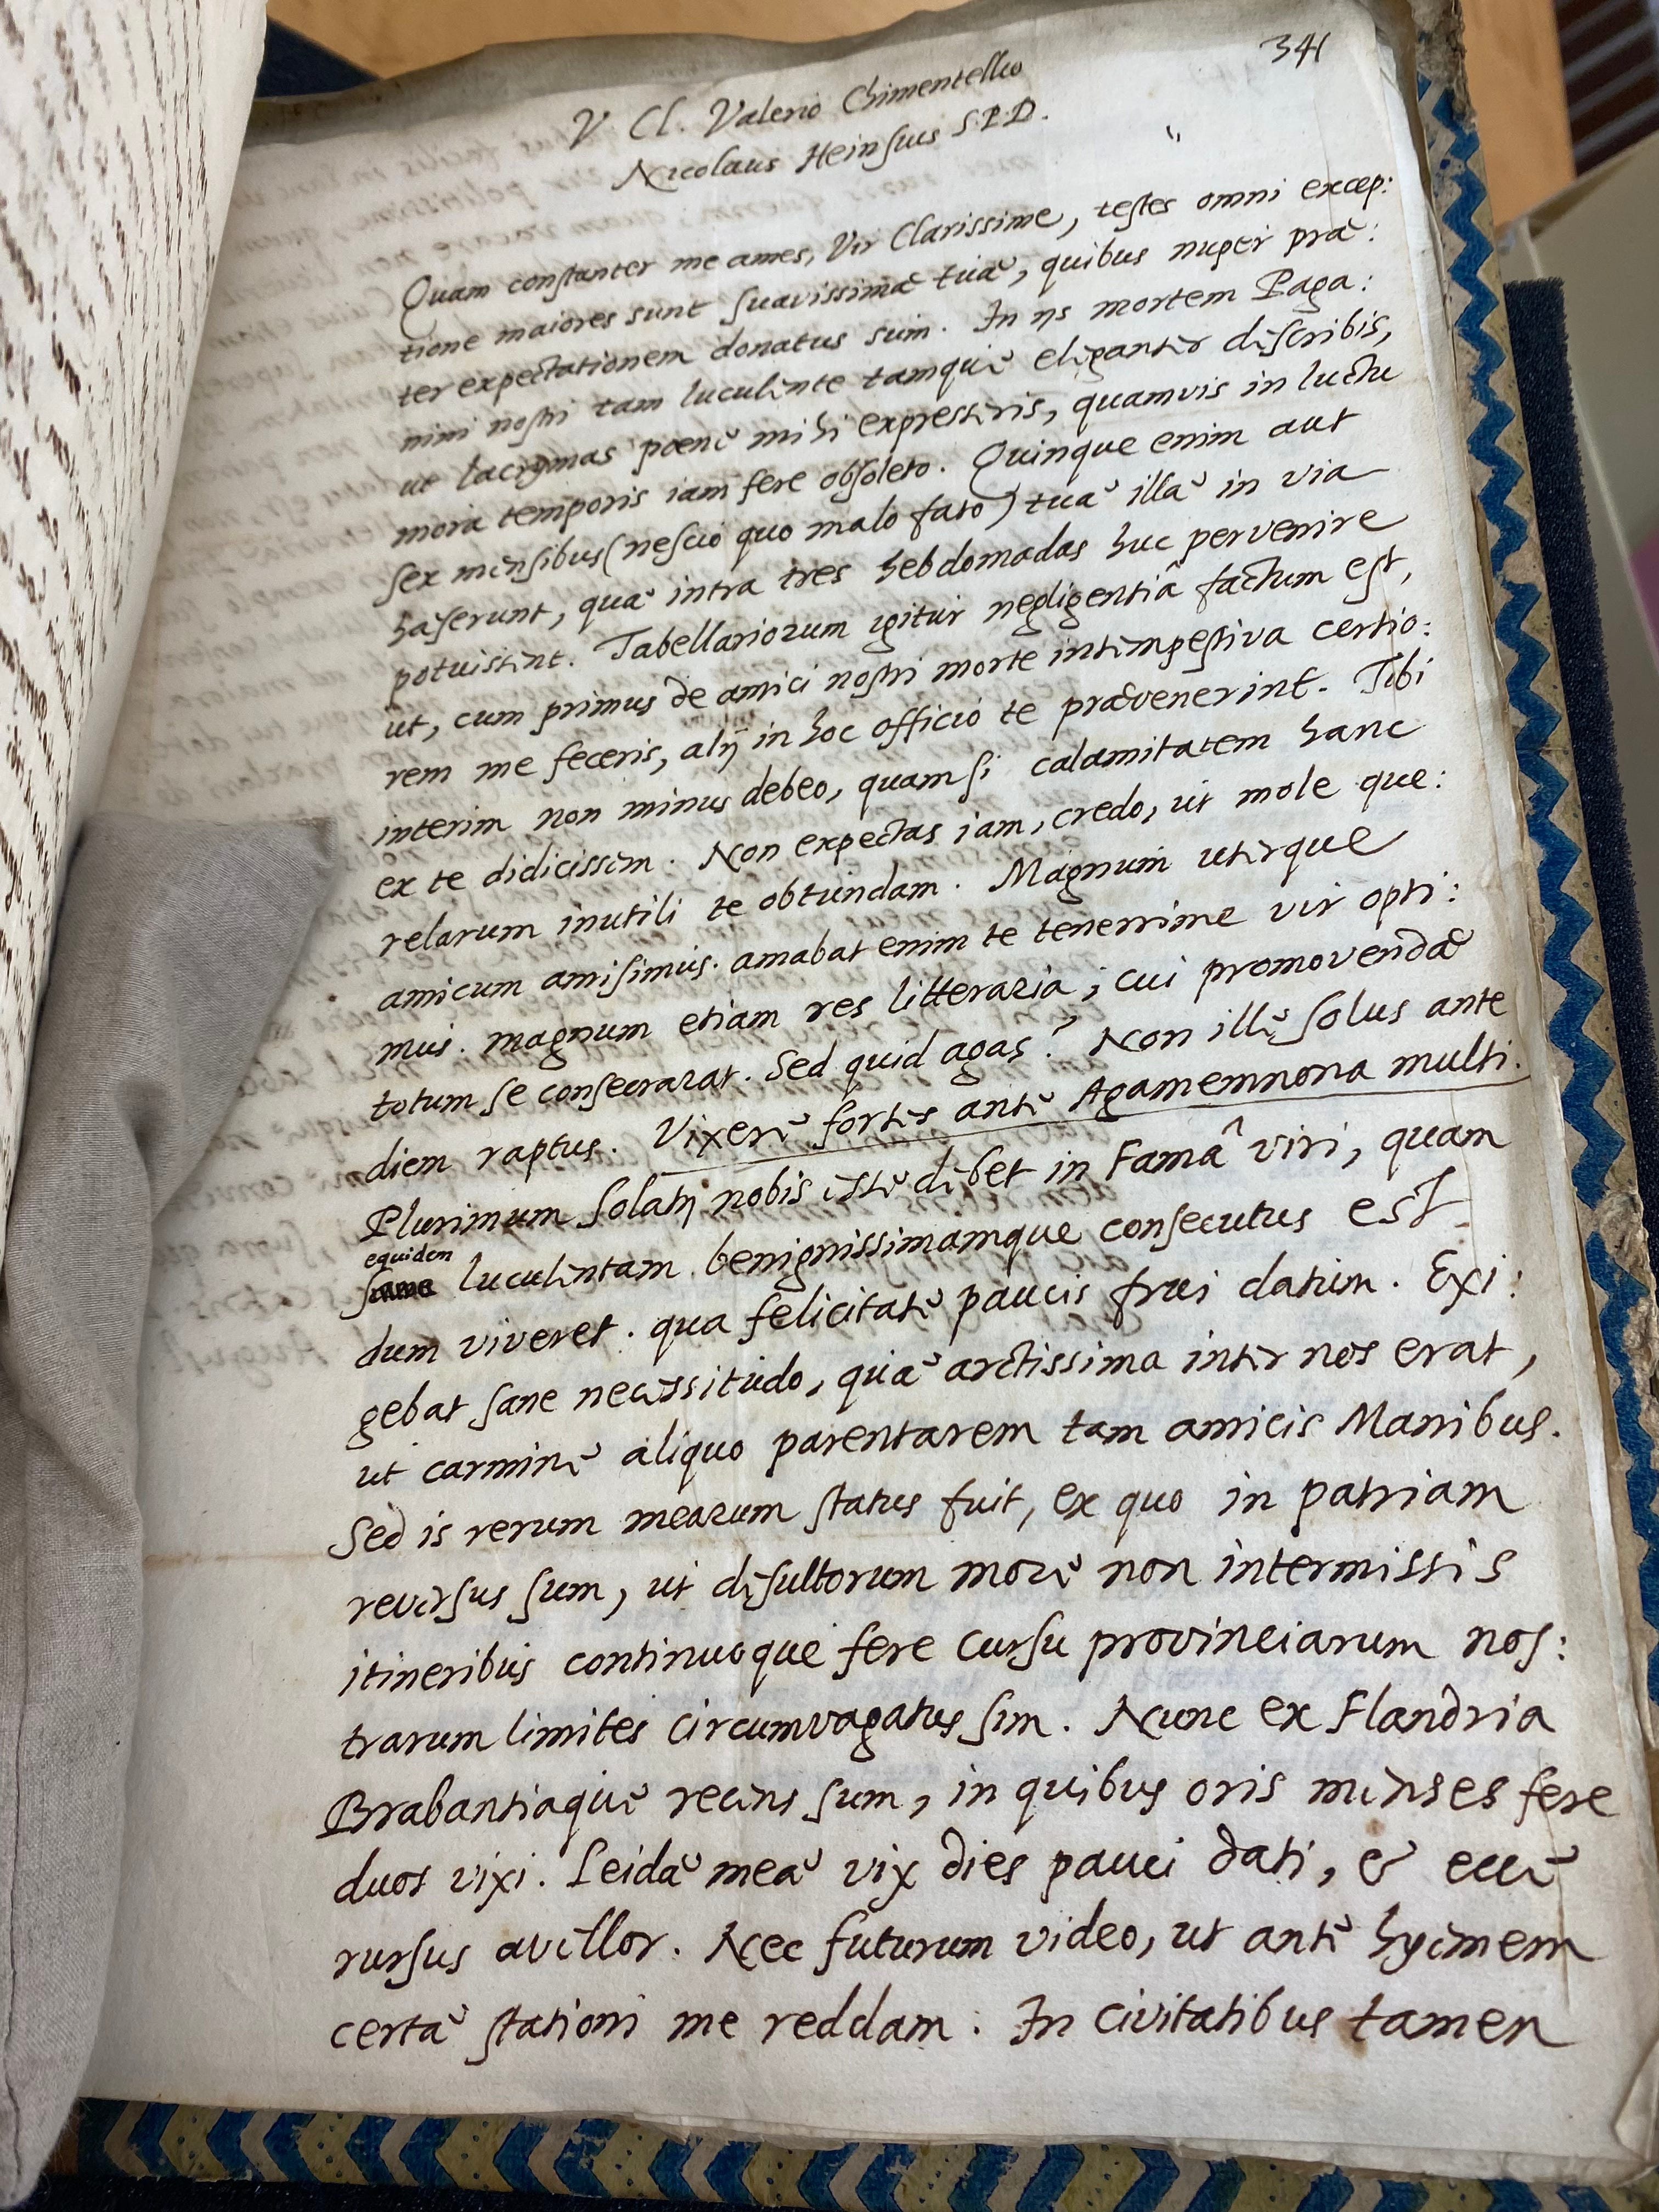 341
V Cl. Valerio Chimentellio
Nicolaus Heinsius S.P.D.
Quam constanter me ames, Vir Clarissime, testes omni excep:
tione maiores sunt suavissimæ tuæ, quibus nuper præ:
ter expectationem donatus sum. In ijs mortem Paga:
nini nostri tam luculente tamque eleganter describis,
ut lacrymas pœne mihi expresseris, quamvis in luctu
mora temporis iam fere obsoleto. Quinque enim aut
sex mensibus (nescio quo malo fato) tuæ illæ in via
hæserunt, quæ intra tres hebdomadas huc pervenire
potuissent. Tabellariorum igitur negligentiâ factum est,
ut, cum primus de amici nostri morte intempestiva certio:
rem me feceris, alij in hoc officio te prævenerint. Tibi
interim non minus debeo, quam si calamitatem hanc
ex te didicissem. Non expectas iam, credo, ut mole que:
relarum inutili te obtundam. Magnum uterque
amicum amisimus. amabat enim te tenerrime vir opti:
mus. magnum etiam res litteraria; cui promovendæ
totum se consecrarat. Sed quid agas? Non ille solus ante
diem raptus. Vixere fortes ante Agamemnona multi.
Plurimum solatij nobis esse debet in Famâ viri, quam
equidem
luculentam benignissimamque consecutus est
dum viveret. qua felicitate paucis frui datum. Exi:
gebat sane necessitudo, quæ arctissima inter nos erat,
ut carmine aliquo parentarem tam amicis Manibus.
Sed is rerum mearum status fuit, ex quo in patriam
reversus sum, ut desultorum more non intermissis
itineribus continuoque fere cursu provinciarum nos:
trarum limites circumvagatus sim. Nunc ex Flandria
Brabantiaque recens sum, in quibus oris menses fere
duos vixi. Leidæ meæ vix dies pauci dati, & ecce
rursus avellor. Nec futurum video, ut ante hyemem
certæ stationi me reddam. In civitatibus tamen